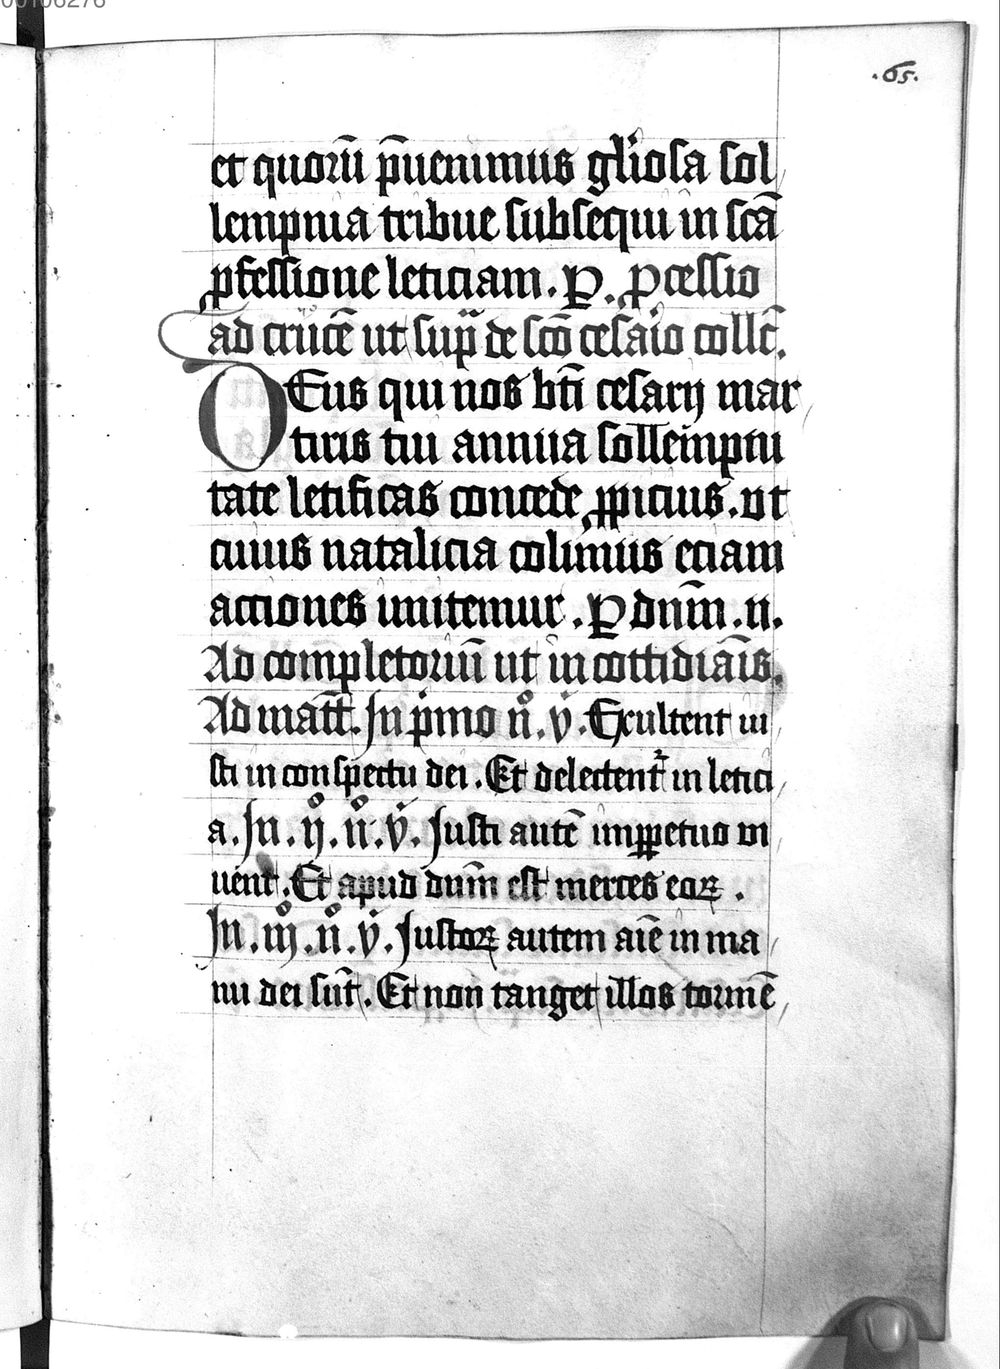 00106276
.65.
et quorū p̄uenimus gl̓iosa sol
lempnia tribue subsequi in scā
ꝓfessione leticiam. ꝑ. ꝓcessio
ad crucē ut supͣ de scō cesaͥo coll̄c.
DEus qui nos bt̄i cesarij mar
tiris tui annua sollempni
tate letificas concede ꝓpicius. ut
cuius natalicia colimus eciam
actiones imitemur. ꝑ dnm̄. n.
Ad completoriū ut in cottidianīs.
Ad matt̄. In pͥmo nͦ. v̓. Exultent iu
sti in conspectu dei. Et delectent᷑ in letici
a. In. ijͦ. nͦ. v̓. Justi autē imꝑpetuo vi
uent. Et apud dnm̄ est merces eoꝝ.
In. iijͦ. nͦ. v̓. Justoꝝ autem aīe in ma
nu dei sūt. Et non tanget illos tormē